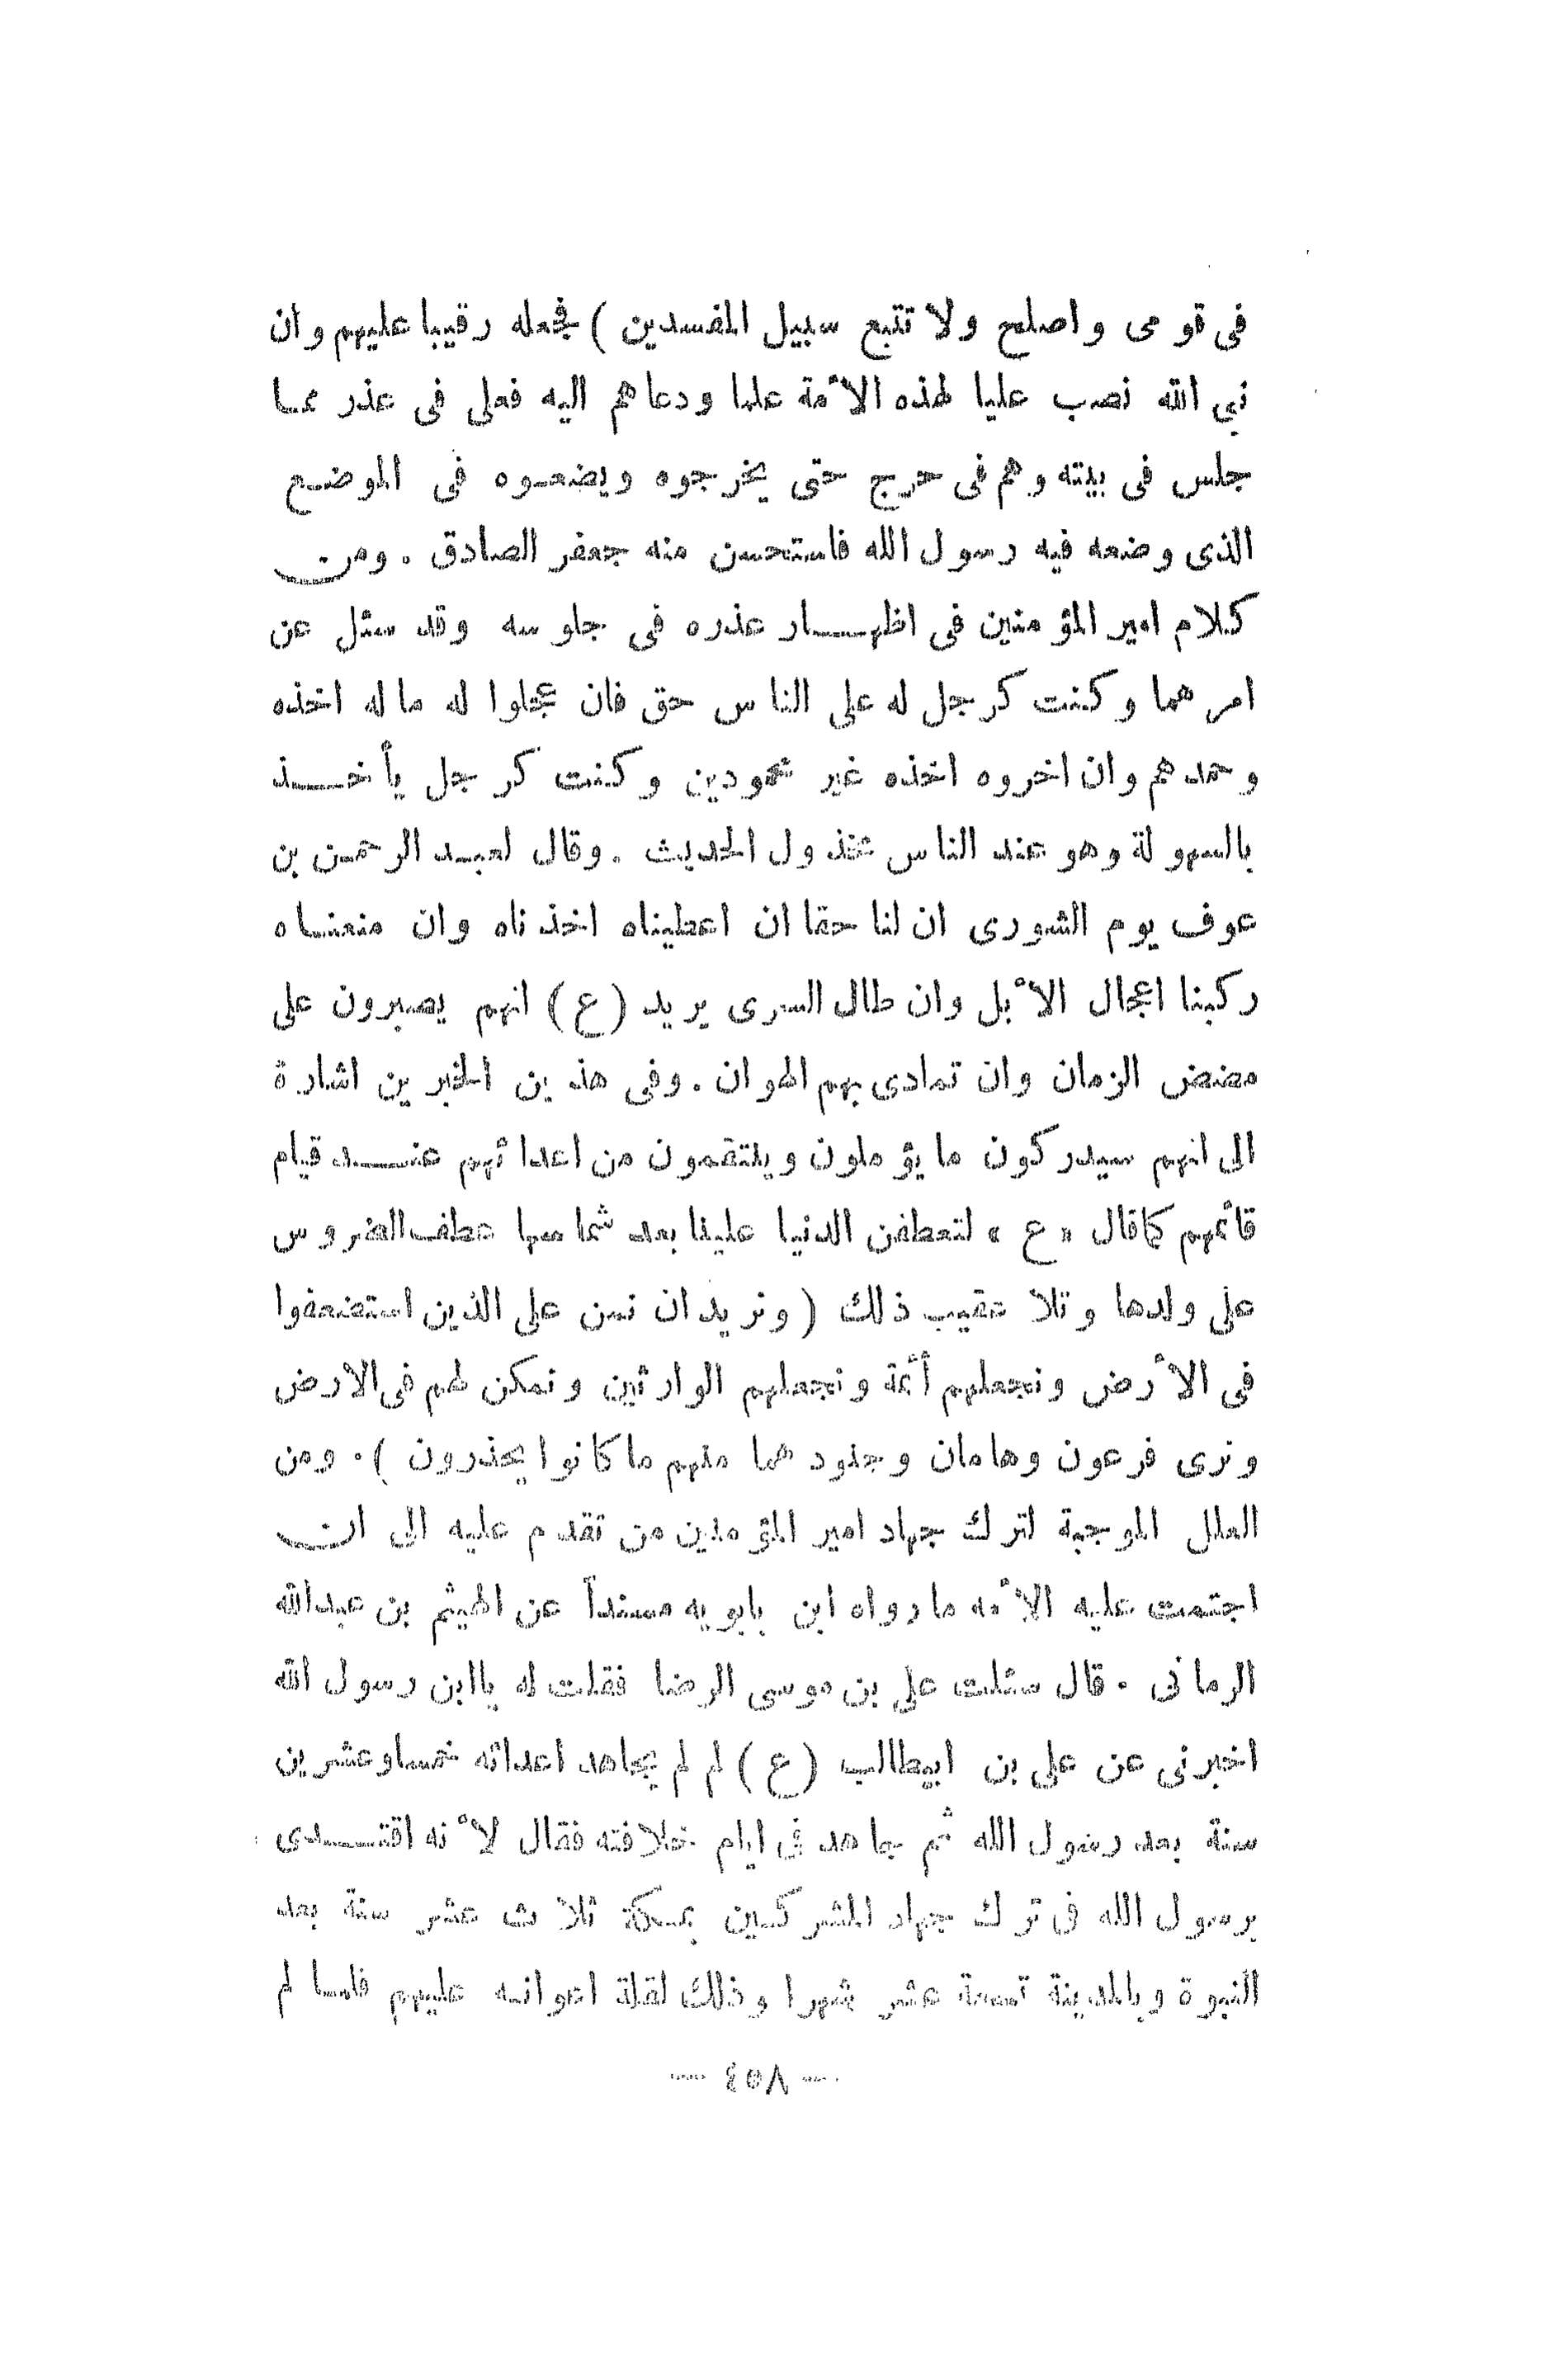 فى قومى واصلح ولا تتبع سبيل المفسدين ) فجعله رقيبا عليهم وان
نبي الله نصب عليا لهذه الأمة علما ودعاهم اليه فعلى فى عذر مما
جلس فى بيته وهم فى حرج حتى يخرجوه ويضعوه فى الموضع
الذى وضعه فيه رسول الله فاستحسن منه جعفر الصادق . ومن
كلام امير المؤمنين فى اظهار عذره فى جلوسه وقد سئل عن
امرهما وكنت كرجل له على الناس حق فان عجلوا له ماله اخذه
وحمدهم وان اخروه اخذه غير محمودين وكنت كرجل يأخذ
بالسهولة وهو عند الناس مخذول الحديث . وقال لعبد الرحمن بن
عوف يوم الشورى ان لنا حقا ان اعطيناه اخذناه وان منعناه
ركبنا اعجال الأبل وان طال السرى يريد (ع) انهم يصبرون على
مضض الزمان وان تمادى بهم الهوان . وفى هذين الخبرين اشارة
الى انهم سيدركون ما يؤملون وينتقمون من اعدائهم عند قيام
قائمهم كما قال « ع » لتعطفن الدنيا علينا بعد شماسها عطف الضروس
على ولدها وتلا عقيب ذلك ( ونريد ان نمن على الذين استضعفوا
فى الأرض ونجعلهم أئمة ونجعلهم الوارثين ونمكن لهم فى الارض
ونرى فرعون وهامان وجنودهما منهم ما كانوا يحذرون ) . ومن
العلل الموجبة لترك جهاد امير المؤمنين من تقدم عليه الى ان
اجتمعت عليه الأمه ما رواه ابن بابويه مسنداً عن الهيثم بن عبدالله
الرمانى . قال سئلت علي بن موسى الرضا فقلت له ياابن رسول الله
اخبرنى عن على بن ابيطالب (ع) لم لم يجاهد اعدائه خمساوعشرين
سنة بعد رسول الله ثم جاهد فى ايام خلافته فقال لأنه اقتدى
برسول الله فى ترك جهاد المشركين بمكة ثلاث عشر سنة بعد
النبوة وبالمدينة تسعة عشر شهرا وذلك لقلة اعوانه عليهم فلما لم
— ٤٥٨ —